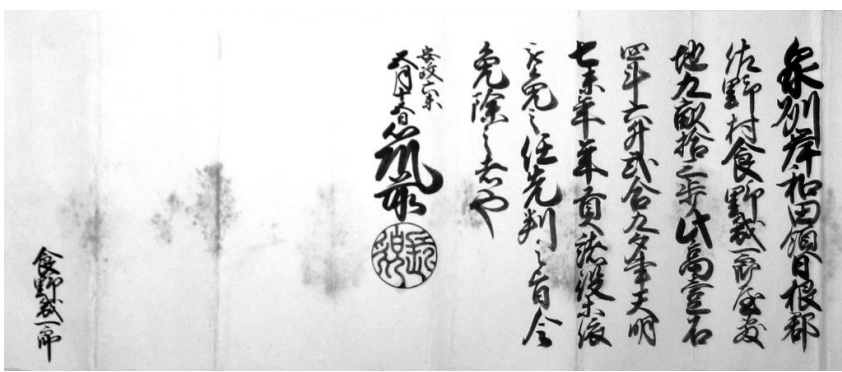 泉州岸和田領日根郡
佐野村食野吉一郎屋敷
地九畝拾三歩此高壱石
四斗六升弐合九夕事天明
七未年年貢諸役等依
令免之任先判之旨令
免除之者也
安政六未
五月十五日 筑前
食野吉一郎